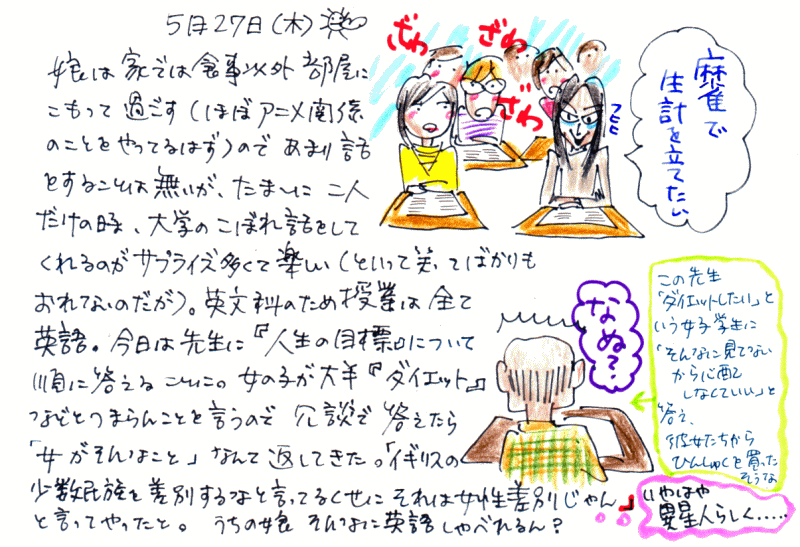 5月27日(木)
娘は家では食事以外部屋に
こもって過ごす(ほぼアニメ関係
のことをやってるはず)のであまり話
をすることは無いが、たまーに二人
だけの時、大学のこぼれ話をして
くれるのがサプライズ多くて楽しい(といって笑ってばかりも
おれないのだが)。英文科のため授業は全て
英語。今日は先生に『人生の目標』について
順に答えることに。女の子が大半『ダイエット』
などとつまらんことを言うので冗談で答えたら
「女がそんなこと」なんて返してきた。「イギリスの
少数民族を差別するなと言ってるくせにそれは女性差別じゃん」
と言ってやったと。うちの娘そんなに英語しゃべれるん?
ざわ
ざわ
ざわ
麻雀で
生計を立てたい
なぬ?
この先生
「ダイエットしたい」と
いう女子学生に
「そんなに見てない
から心配
しなくていい」と
答え、
彼女たちから
ひんしゅくを買った
そうな
いやはや
異星人らしく……